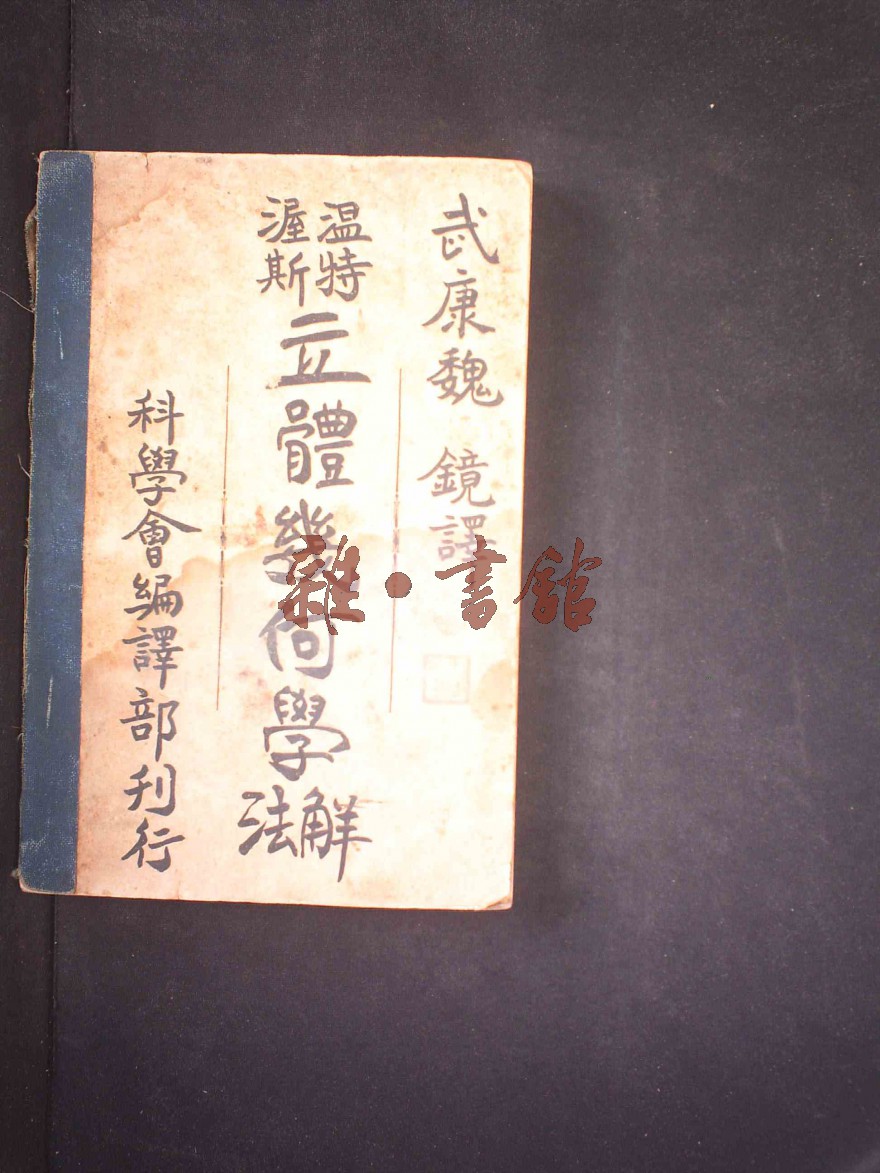 武康魏 鏡譯
温特
渥斯
立體幾何學
解法
科學會編譯部刊行
雜·書館